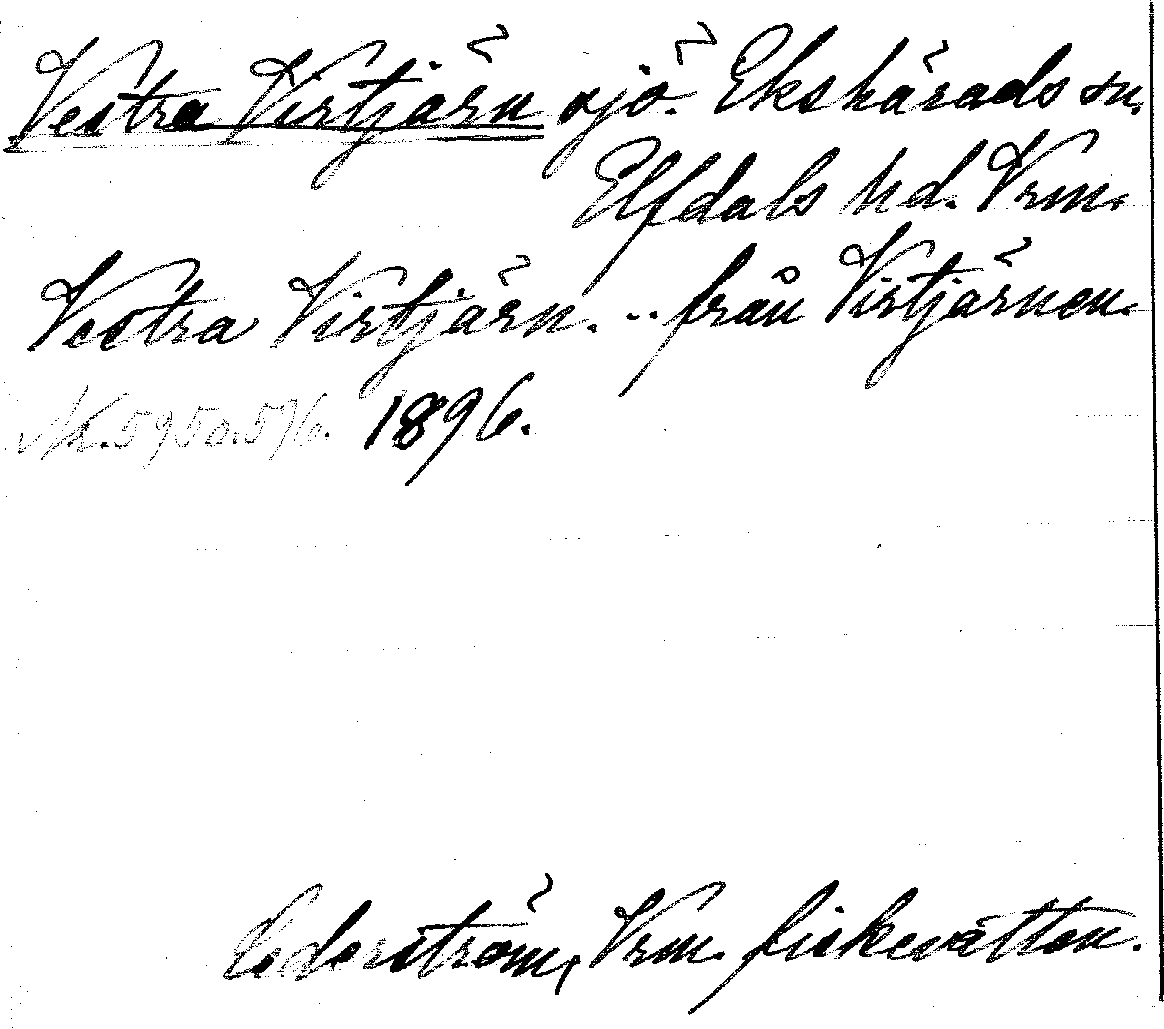 Vestra Virtjärn sjö. Ekshärads sn.
Elfdals hd. Vrm.
Vestra Virtjärn. .. från Virtjärnen.
1896.
Cederström, Vrm. fiskevatten.